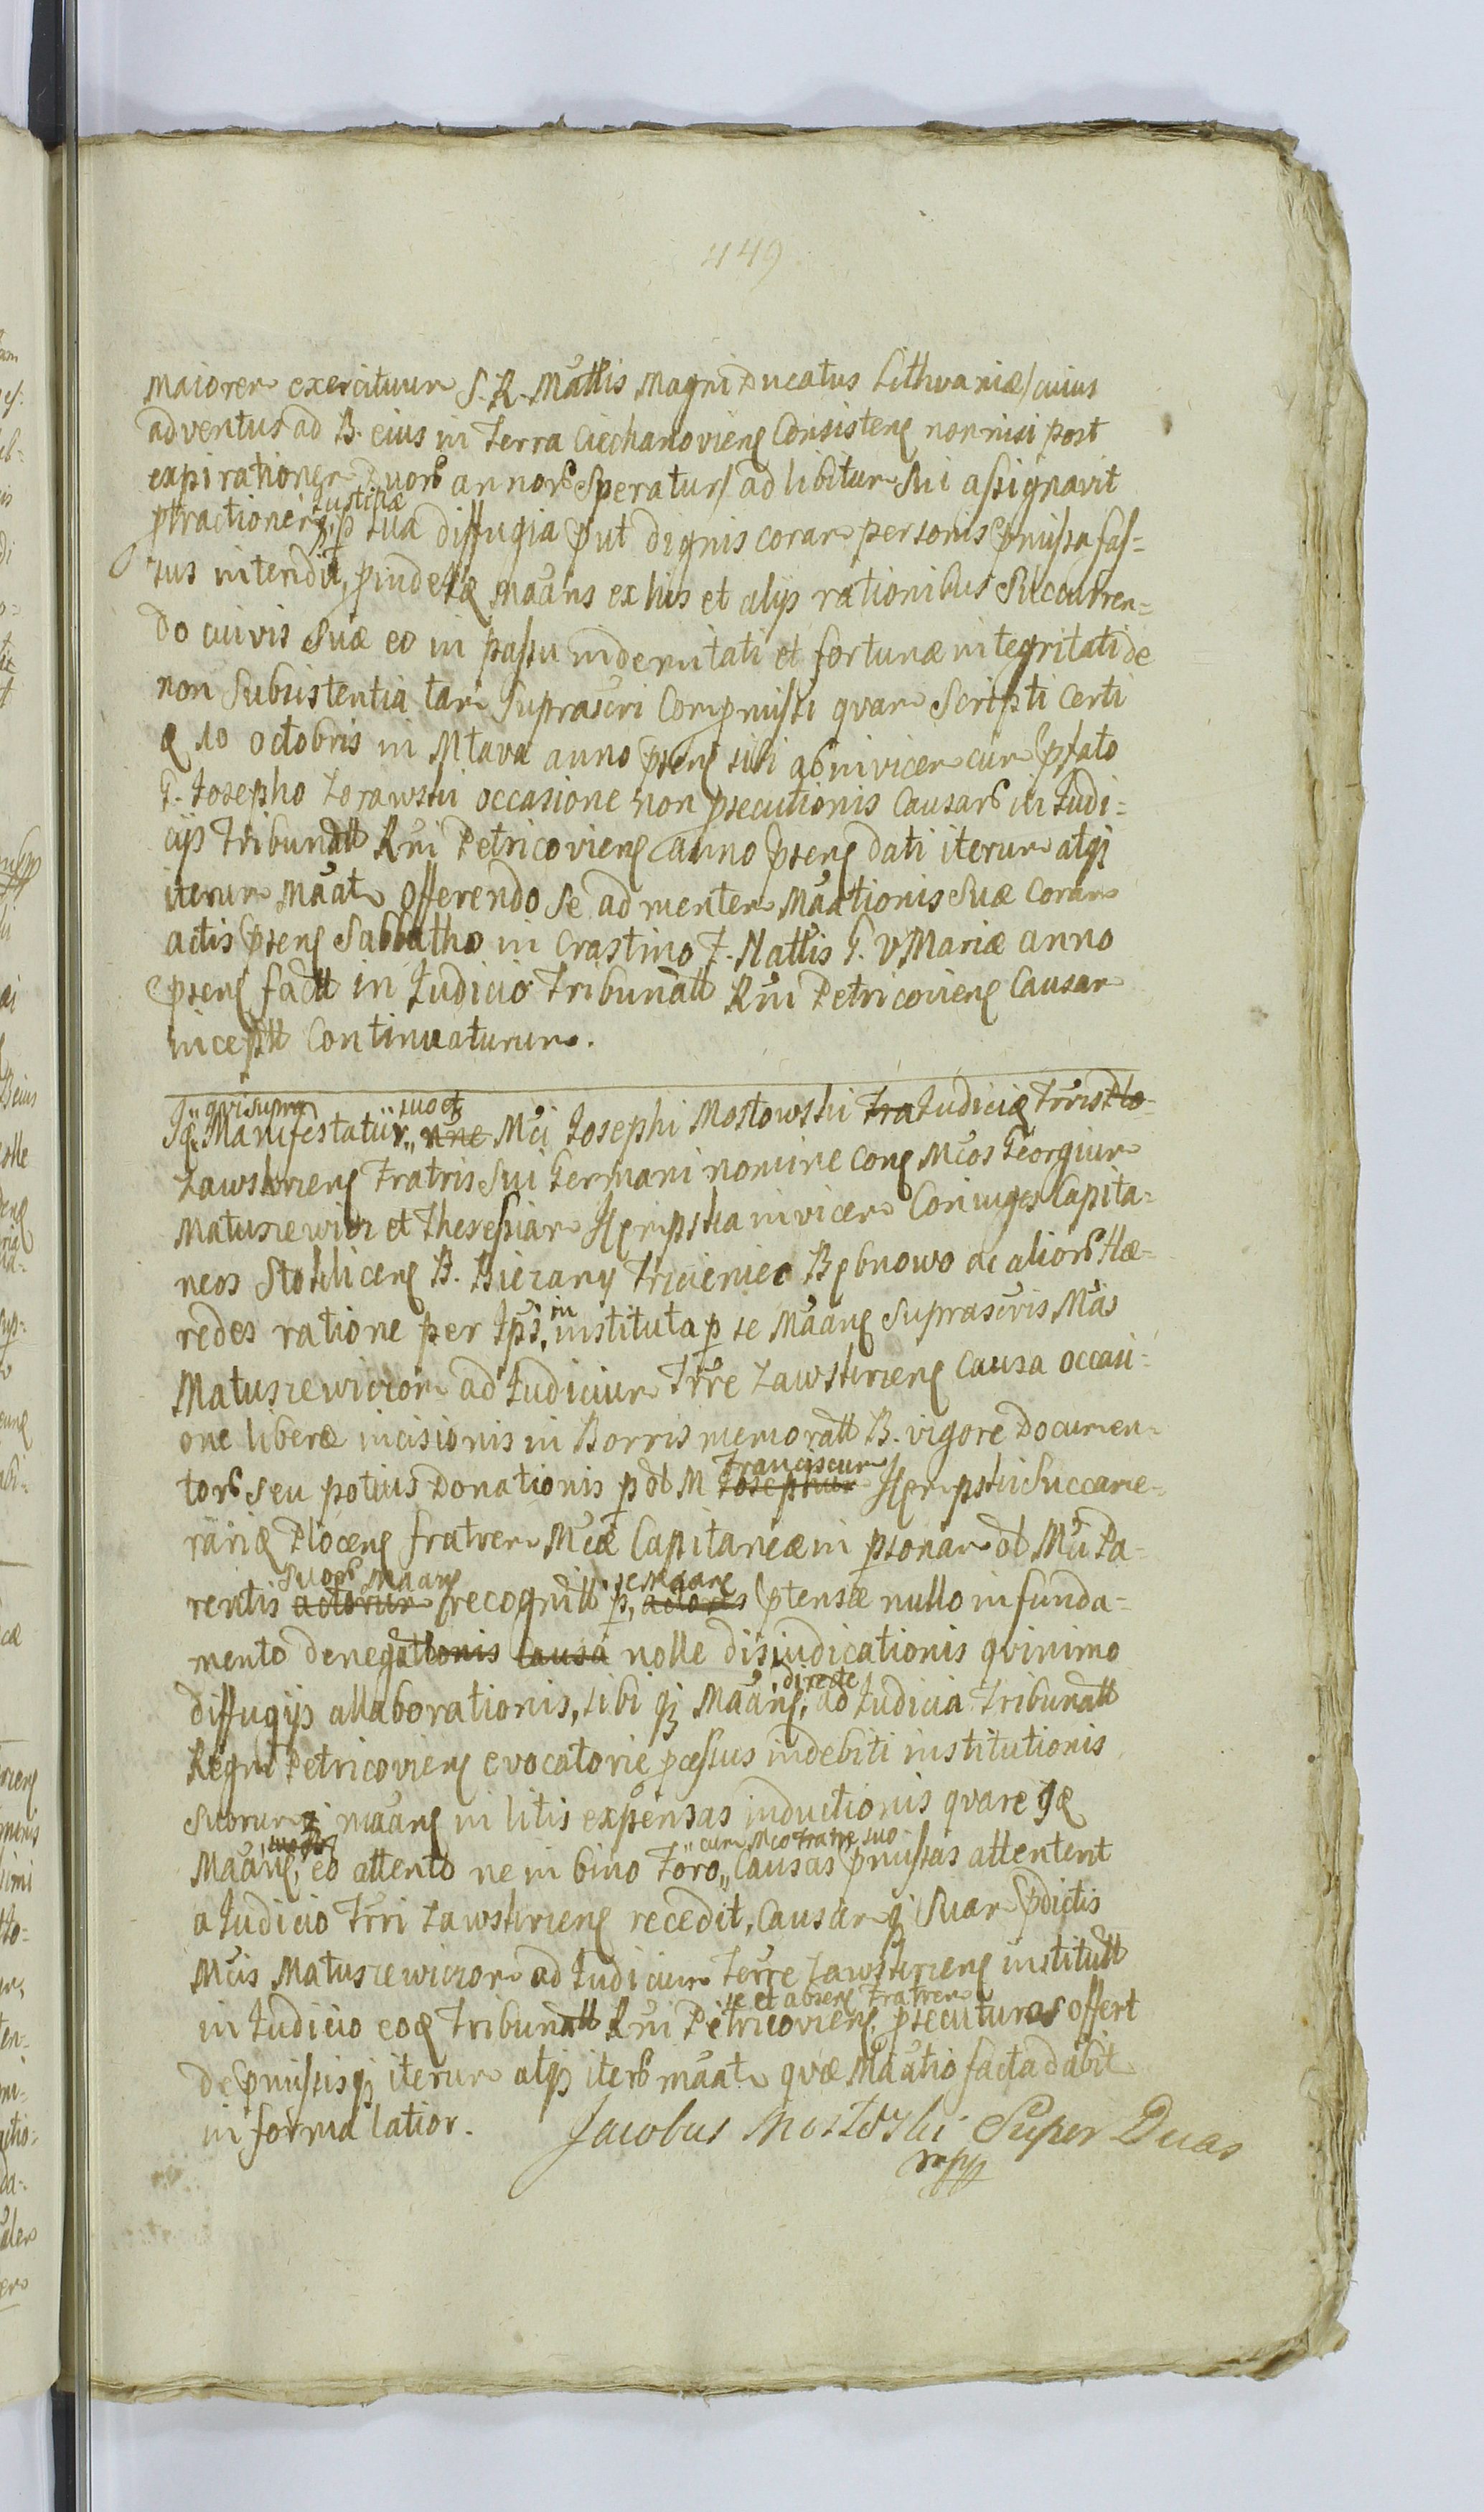 449
maiorem exercituum S. R. Mattis Magni Ducatus Lithvaniæ/cuius
adventus ad B. eius in Terra Ciechanovieñ Consisteñ non nisi post
expirationem duorũ annorũ Speratur/ ad libitum Sui assignavit
ptractionem Justitiæ p sua diffugia put dignis coram personis pmissa fas=
sus intendit, pinde Iq maañs ex his et alys rationibus Succurren=
do cuivis Suæ eo in passu indemnitati et fortunæ integritati de
non Subsistentia tam Suprascri Compmissi quam Scripti certi
q 10 octobris in Mlava anno pseñ sibi abinvicem cum pfato
G. Josepho Zorawski occasione non psecutionis Causarũ in Judi=
cys Tribunatt Rñi Petricovieñ anno pseñ dati iterum atqj
iterum Maatr offerendo Se ad mentem Maationis Suæ Coram
actis pseñ Sabbatho in Crastino F. Nattis G. V Mariæ anno
pseñ fatt in Judicio Tribunatt Rñi Petricovieñ Causam
inceptt Continuaturum.
Iq qvi supra Manifestatur suo et ñne Mci Josephi Mostowski Fra Judiciq Trris Plo
Zawskrzeñ Fratris Sui Germani nomine Coñ Mcos Georgium
Matuszewicz et Theressiam Hempska invicem Coniuges Capita=
neos Stokliceñ B. Biezany Trzcieniec Bębnowo ac aliorũ Hæ=
redes ratione per Ips, in instituta p se Maañ Suprascris Mas
Matuszewiczom ad Judicium Trre Zawskrzeñ Causa occasi=
one liberæ incisionis in Borris memoratt B. vigore Documen=
torũ seu potius Donationis p ol M Franciscum Josephum Hempski Succame=
rariq Ploceñ fratrem Mcæ Capitaneæ in psonam ol Mci Pa=
rentis Suorũ Maañ actorum recognitt p, se Maañ actores ptensæ nullo in funda=
mento denegationis Causa nolle disiudicationis qvinimo
diffugys allaborationis, sibi qj Maañ, directe ad Judicia Tribunatt
Regni Petricovieñ evocatorie pcessus indebiti institutionis
Suorum qj maañ in litis expensas inductionis qvare Iq
Maañ, suo et eo attento ne in bino Foro,, cum Mco Fratre suo Causas pmissas attentent
a Judicio Trri Zawskrzeñ recedit, Causam qj Suam pdictis
Mcis Matuszewiczom ad Judicium Terre Zawskrzeñ institutt
in Judicio eoq Tribunatt Rñi Petricovieñ, se et abseñ Fratrem psecuturos offert
de pmissis qj iterum atqj iterũ maatr qvæ Maatio facta dabit
in forma latior. Jacobus Mostowski Super Duas
mpp